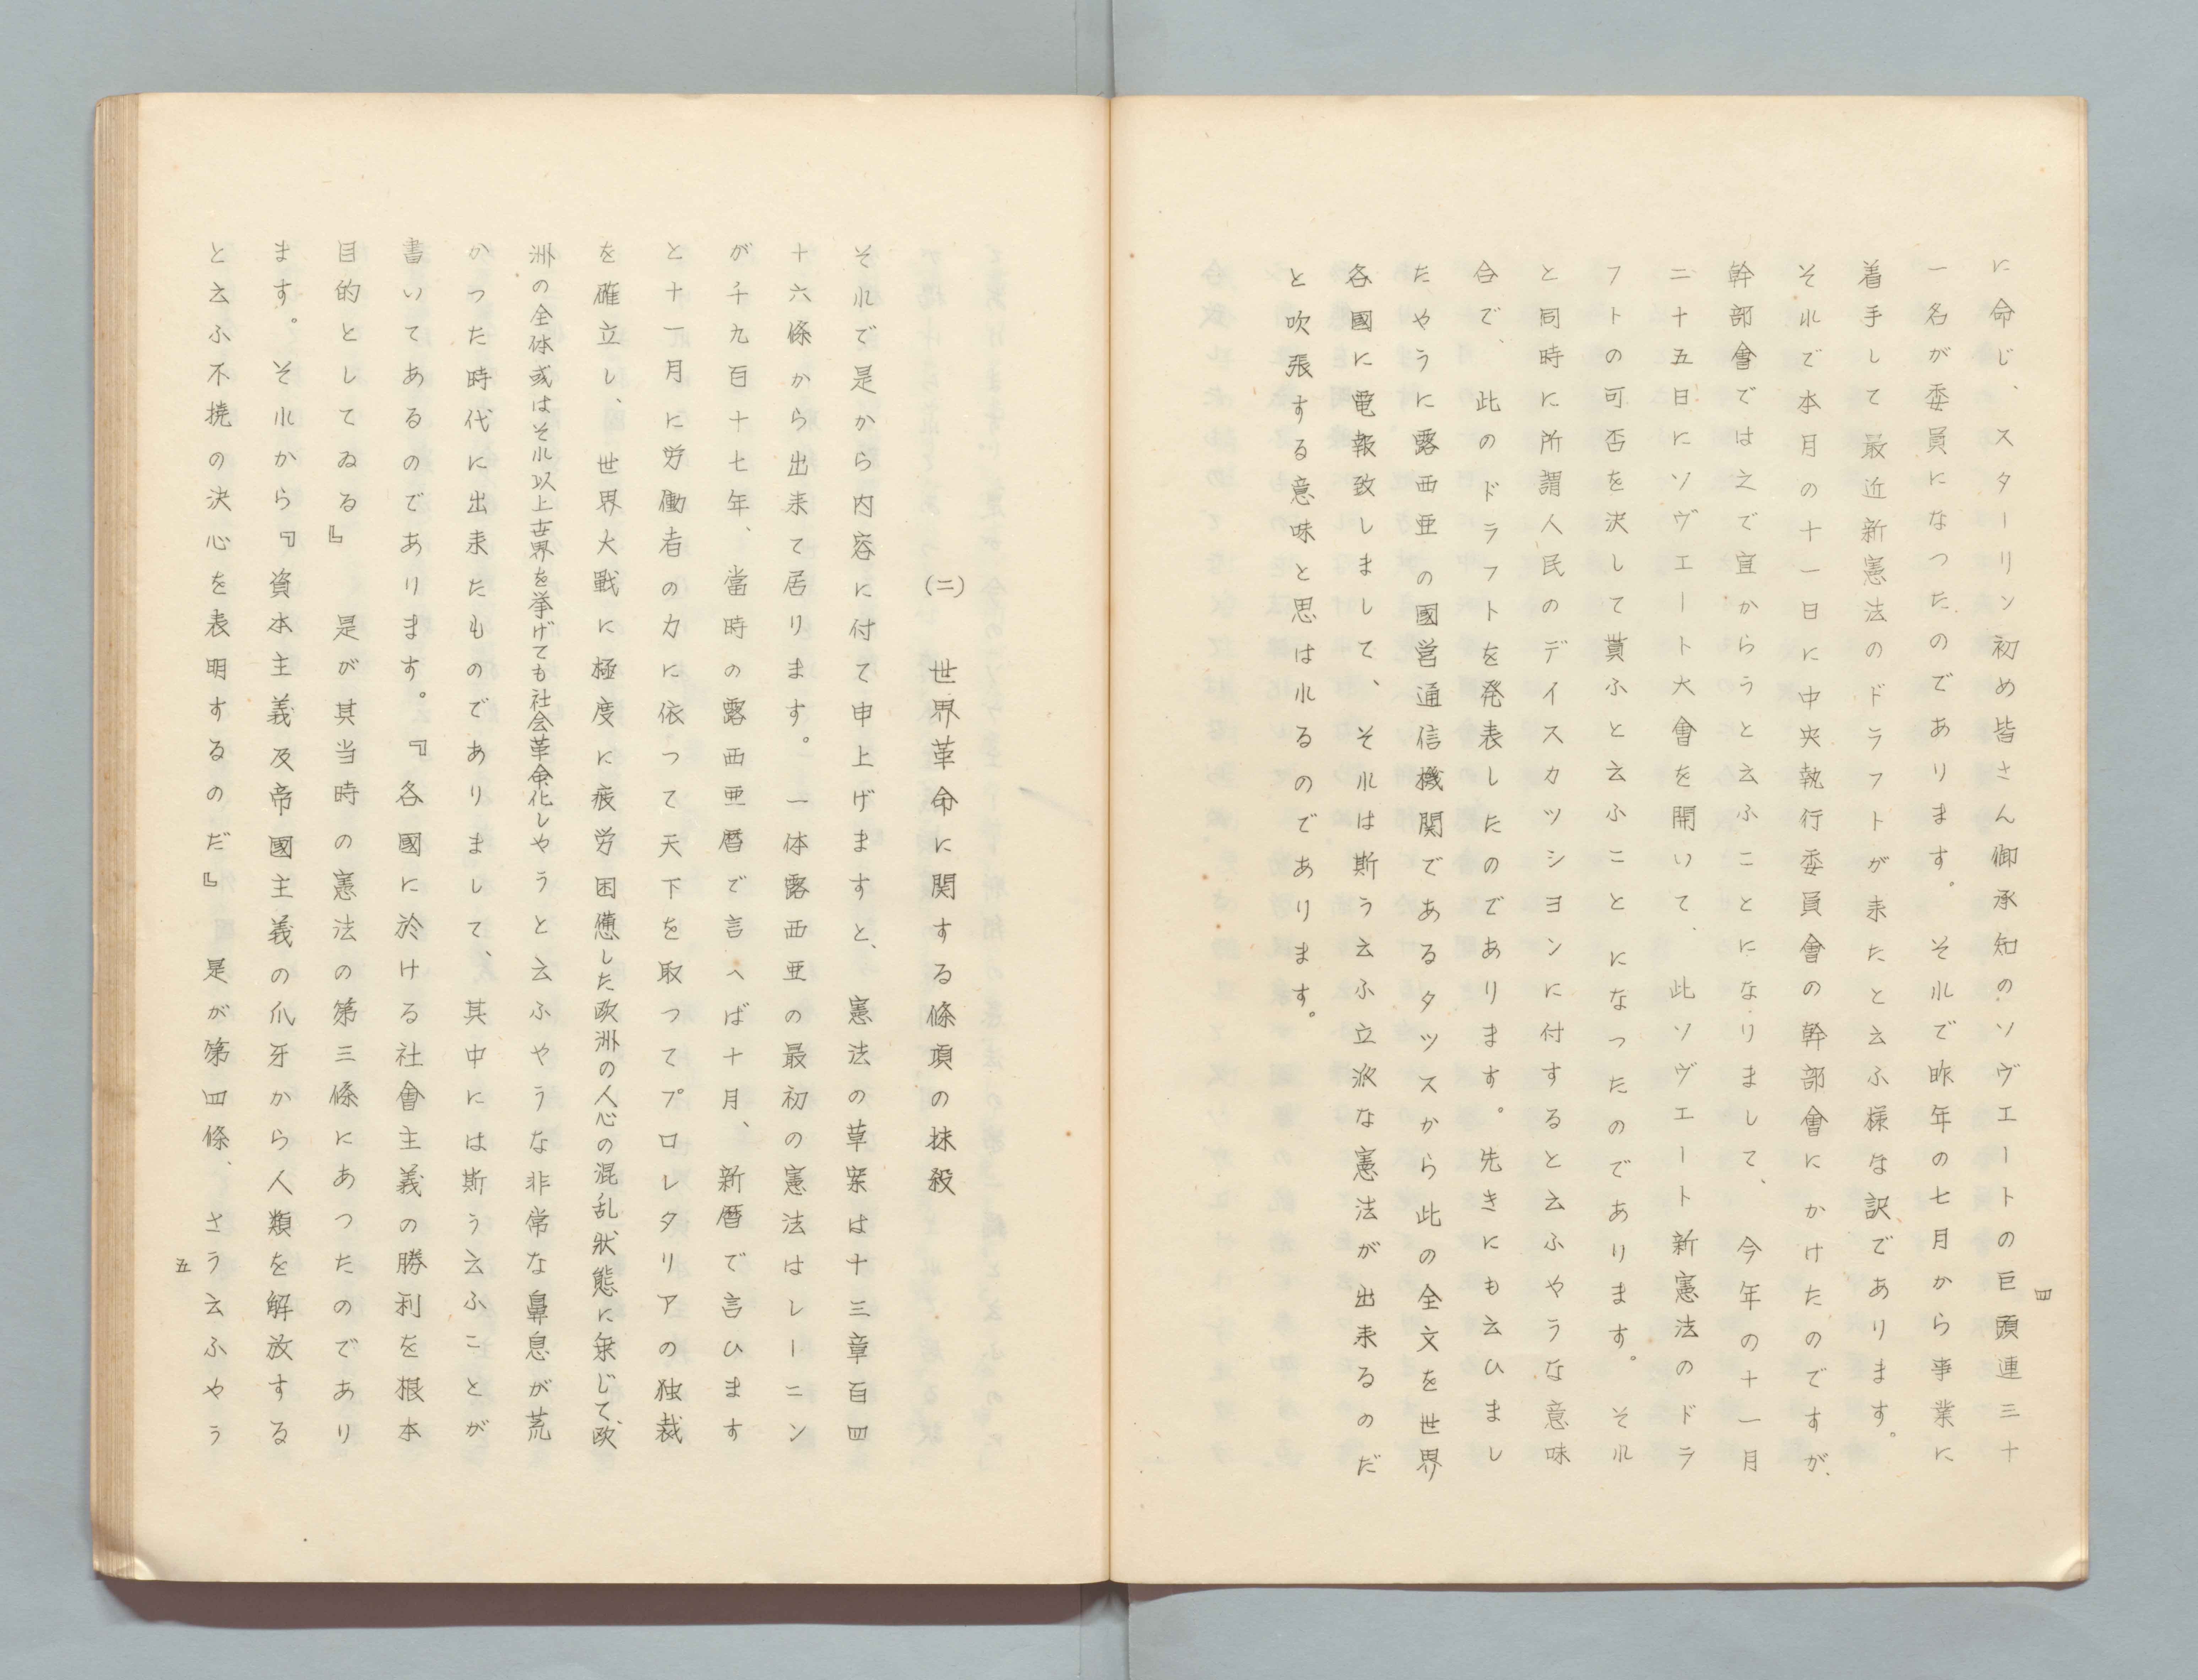 四
に命じ、スターリン初め皆さん御承知のソヴエートの巨頭連三十
一名が委員になつたのであります。それで昨年の七月から事業に
着手して最近新憲法のドラフトが来たと云ふ様な訳であります。
それで本月の十一日に中央執行委員會の幹部會にかけたのですが、
幹部會では之で宜からうと云ふことになりまして、今年の十一月
二十五日にソヴエート大會を開いて、此ソヴエート新憲法のドラ
フトの可否を決して貰ふと云ふことになつたのであります。それ
と同時に所謂人民のデイスカツシヨンに付すると云ふやうな意味
合で、此のドラフトを発表したのであります。先きにも云ひまし
たやうに露西亜の國営通信機関であるタツスから此の全文を世界
各國に電報致しまして、それは斯う云ふ立派な憲法が出来るのだ
と吹張する意味と思はれるのであります。
(二)　世界革命に関する條項の抹殺
それで是から内容に付て申上げますと、憲法の草案は十三章百四
十六條から出来て居ります。一体露西亜の最初の憲法はレーニン
が千九百十七年、當時の露西亜暦で言へば十月、新暦で言ひます
と十一月に労働者の力に依つて天下を取つてプロレタリアの独裁
を確立し、世界大戰に極度に疲労困憊した欧洲の人心の混乱狀態に乗じて、欧
洲の全体或はそれ以上世界を挙げても社会革命化しやうと云ふやうな非常な鼻息が荒
かつた時代に出来たものでありまして、其中には斯う云ふことが
書いてあるのであります。『各國に於ける社會主義の勝利を根本
目的としてゐる』　是が其当時の憲法の第三條にあつたのであり
ます。それから『資本主義及帝國主義の爪牙から人類を解放する
と云ふ不撓の決心を表明するのだ』　是が第四條、さう云ふやう
五